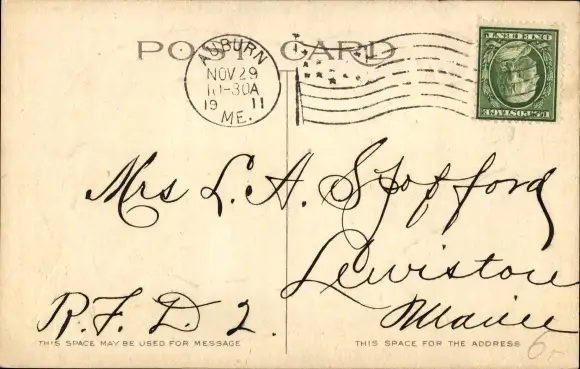 POST CARD
AUBURN
NOV 29
10-30A
19 11
ME.
U.S. POSTAGE
ONE CENT
Mrs L. A. Stofford
Lewiston
Maine
R. F. D. 2.
THIS SPACE MAY BE USED FOR MESSAGE
THIS SPACE FOR THE ADDRESS
6